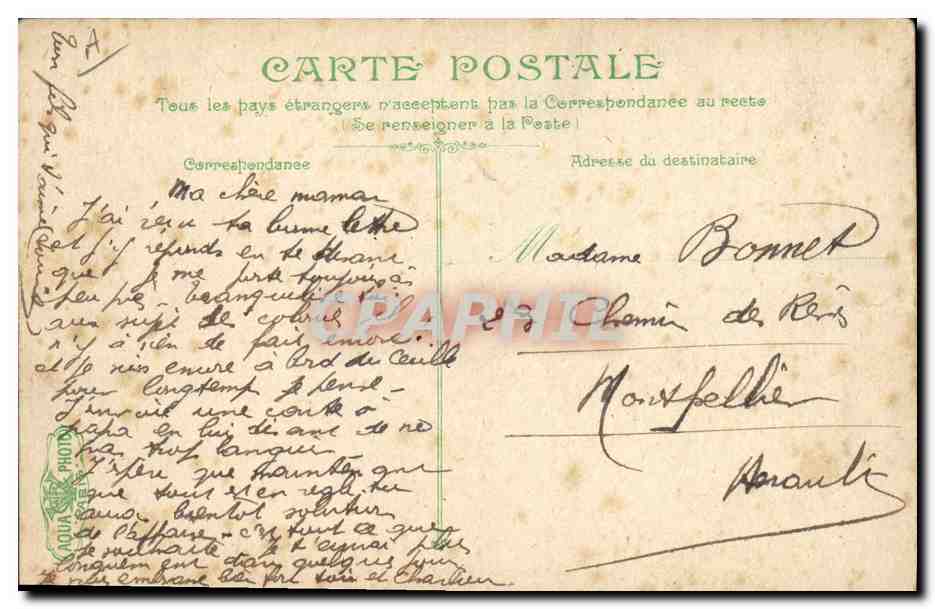 CARTE POSTALE
Tous les pays étrangers n'acceptent pas la Correspondance au recto
(Se renseigner à la Poste)
Correspondance
Adresse du destinataire
Ma chère maman
J'ai reçu ta bonne lettre
et j'y réponds en te disant
que je me porte toujours à
peu près - tranquillise toi
au sujet des colonies il
n'y a rien de fait encore.
et je suis encore à bord du
pour longtemps je pense -
J'envoie une carte à
papa en lui disant de ne
pas trop languir
J'espère que maintenant
que tout est en règle tu
auras bientôt solution
de l'affaire - c'est tout ce que
je souhaite je t'écrirai plus
longuement dans quelques jours
Je vous embrasse bien fort toi et
Ton fils qui t'aime
Madame Bonnet
Chemin des
Montpellier
Herault
AQUA PHOTO
PARIS
CPAPHIL